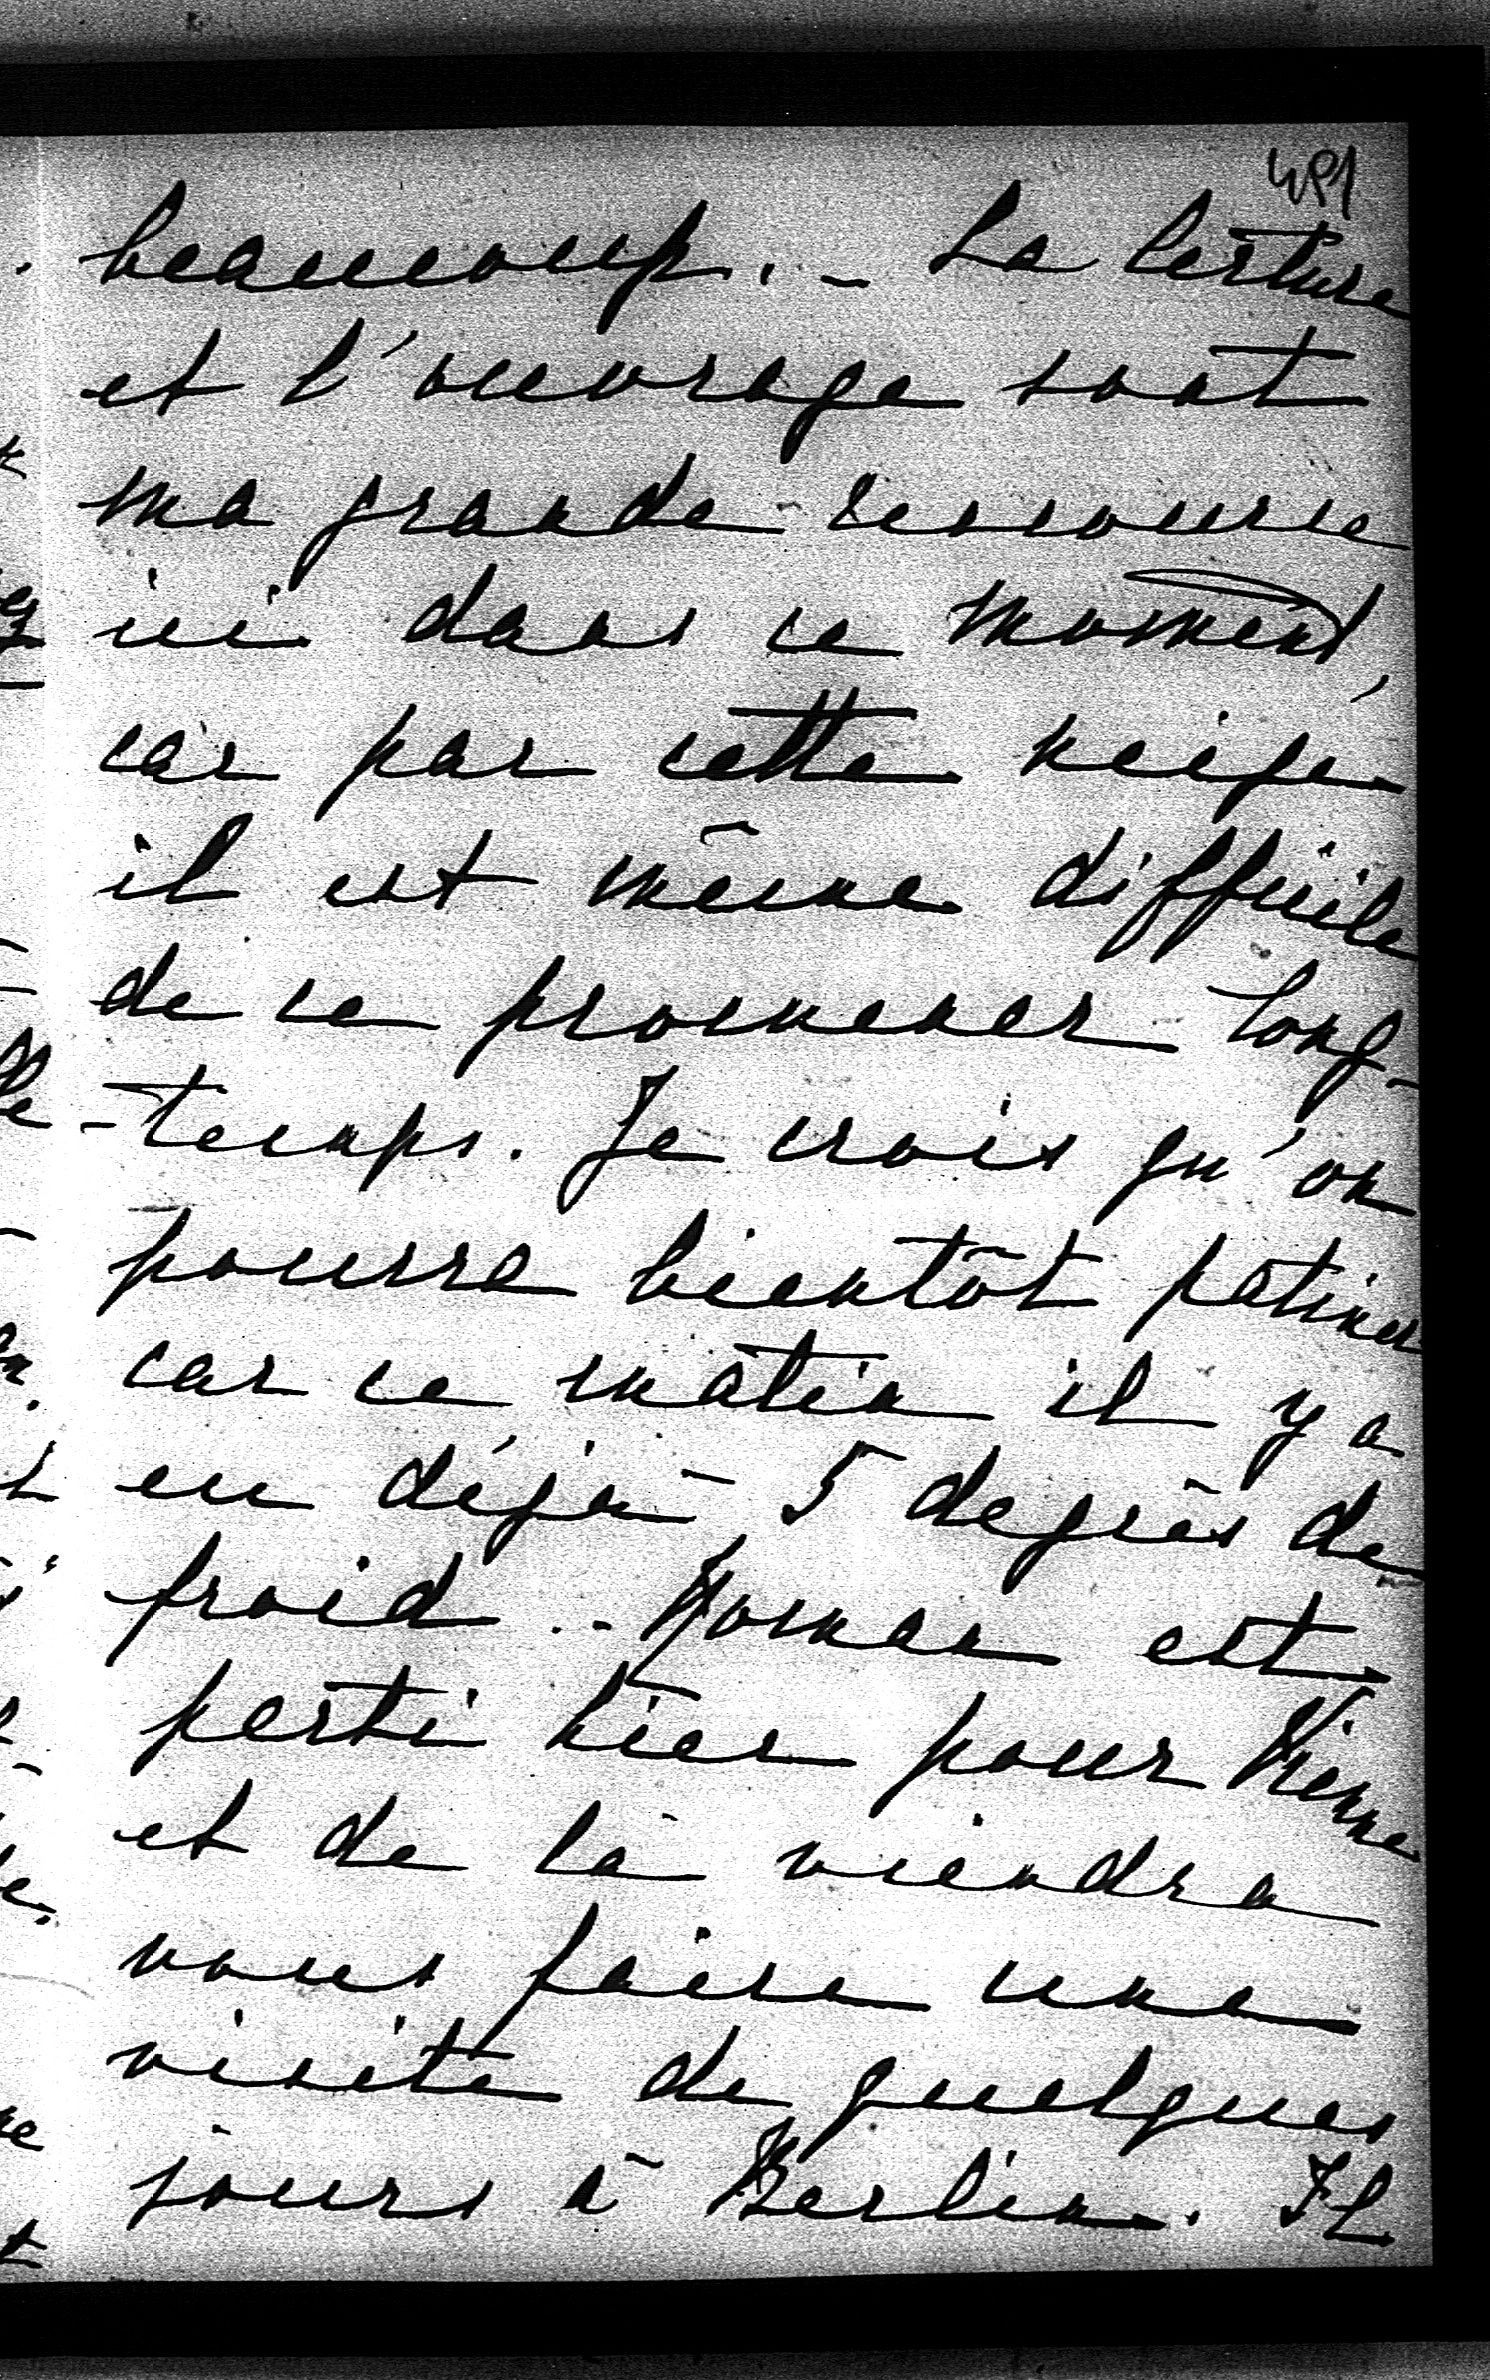 beaucoup. - La lecture
et l'ouvrage sont
ma grande ressource
ici dans ce moment,
car par cette neige
il est même difficile
de se promener long-
-temps. Je crois qu'on
pourra bientôt patiner
car ce matin il y a
eu déjà 5 degrés de
froid. - Roman est
parti hier pour Vienne
et de là viendra
nous faire une
visite de quelques
jours à Berlin. Il